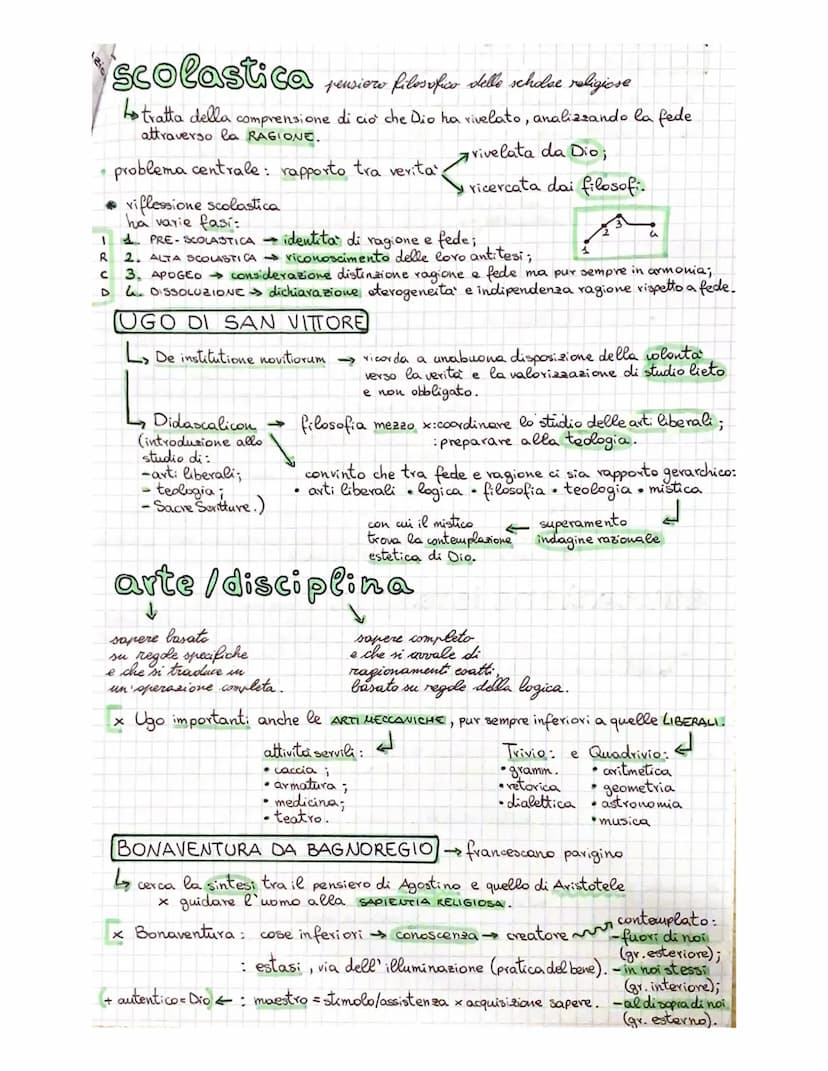 scolastica pensiero filosofico delle scholae religiose
↳ tratta della comprensione di ciò che Dio ha rivelato, analizzando la fede
attraverso la RAGIONE.
• problema centrale: rapporto tra verità
↗ rivelata da Dio;
↘ ricercata dai filosofi.
• riflessione scolastica
ha varie fasi:
1 2 3 4
I 1. PRE-SCOLASTICA → identità di ragione e fede;
R 2. ALTA SCOLASTICA → riconoscimento delle loro antitesi;
C 3. APOGEO → considerazione distinzione ragione e fede ma pur sempre in armonia;
D 4. DISSOLUZIONE → dichiarazione eterogeneità e indipendenza ragione rispetto a fede.
UGO DI SAN VITTORE
↳ De institutione novitiorum → ricorda a una buona disposizione della volontà
verso la verità e la valorizzazione di studio lieto
e non obbligato.
↳ Didascalicon → filosofia mezzo x: coordinare lo studio delle art. liberali;
: preparare alla teologia.
(introduzione allo
studio di:
- arti liberali;
- teologia;
- Sacre Scritture.)
convinto che tra fede e ragione ci sia rapporto gerarchico:
• arti liberali • logica • filosofia • teologia • mistica
con cui il mistico ← superamento
trova la contemplazione indagine razionale
estetica di Dio.
arte/disciplina
sapere basato
su regole specifiche
e che si traduce in
un'operazione completa.
sapere completo
e che si avvale di
ragionamenti esatti,
basato su regole della logica.
x Ugo importanti anche le ARTI MECCANICHE, pur sempre inferiori a quelle LIBERALI.
attività servili:
• caccia;
• armatura;
• medicina;
• teatro.
Trivio: e Quadrivio:
• gramm. • aritmetica
• retorica • geometria
• dialettica • astronomia
• musica
BONAVENTURA DA BAGNOREGIO → francescano parigino
↳ cerca la sintesi tra il pensiero di Agostino e quello di Aristotele
x guidare l'uomo alla SAPIENTIA RELIGIOSA.
x Bonaventura: cose inferiori → conoscenza → creatore
contemplato:
- fuori di noi
(gr. esteriore);
: estasi, via dell'illuminazione (pratica del bene).
- in noi stessi
(gr. interiore);
(+ autentico = Dio) ← : maestro = stimolo/assistenza x acquisizione sapere.
- al di sopra di noi
(gr. esterno).